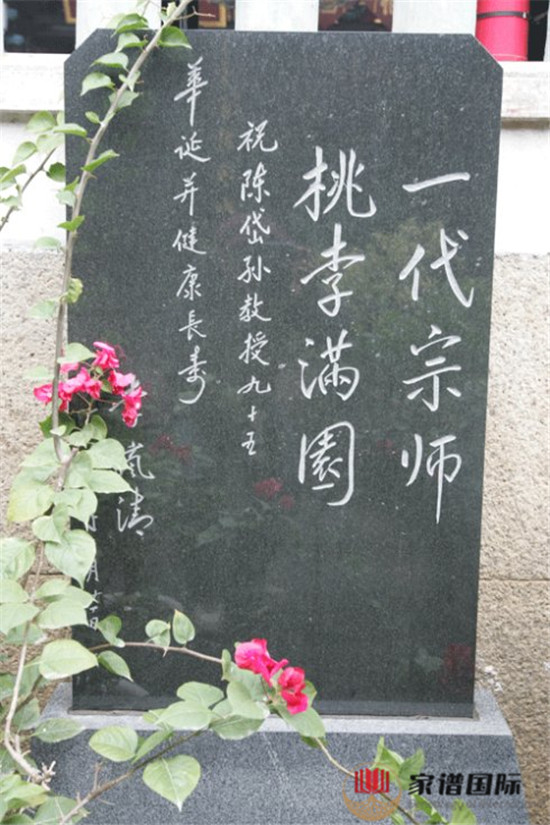 一代宗师
桃李满園
祝陈岱孙教授九十五
華诞并健康長寿
岚清
家谱国际